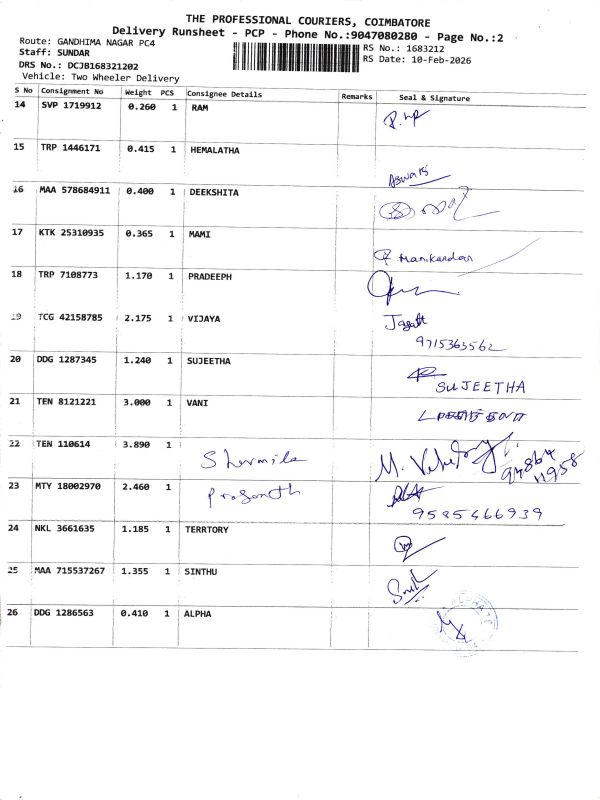 THE PROFESSIONAL COURIERS, COIMBATORE
Delivery Runsheet - PCP - Phone No.:9047080280 - Page No.:2
Route: GANDHIMA NAGAR PC4
Staff: SUNDAR
DRS No.: DCJB168321202
Vehicle: Two Wheeler Delivery
RS No.: 1683212
RS Date: 10-Feb-2026
S No Consignment No Weight PCS Consignee Details Remarks Seal & Signature
14 SVP 1719912 0.260 1 RAM
15 TRP 1446171 0.415 1 HEMALATHA
16 MAA 578684911 0.400 1 DEEKSHITA
17 KTK 25310935 0.365 1 MAMI Manikandan
18 TRP 7108773 1.170 1 PRADEEPH
19 TCG 42158785 2.175 1 VIJAYA
9715363562
20 DDG 1287345 1.240 1 SUJEETHA
SUJEETHA
21 TEN 8121221 3.000 1 VANI
22 TEN 110614 3.890 1 Sharmila
23 MTY 18002970 2.460 1 Prasanth
9585466939
24 NKL 3661635 1.185 1 TERRTORY
25 MAA 715537267 1.355 1 SINTHU
26 DDG 1286563 0.410 1 ALPHA